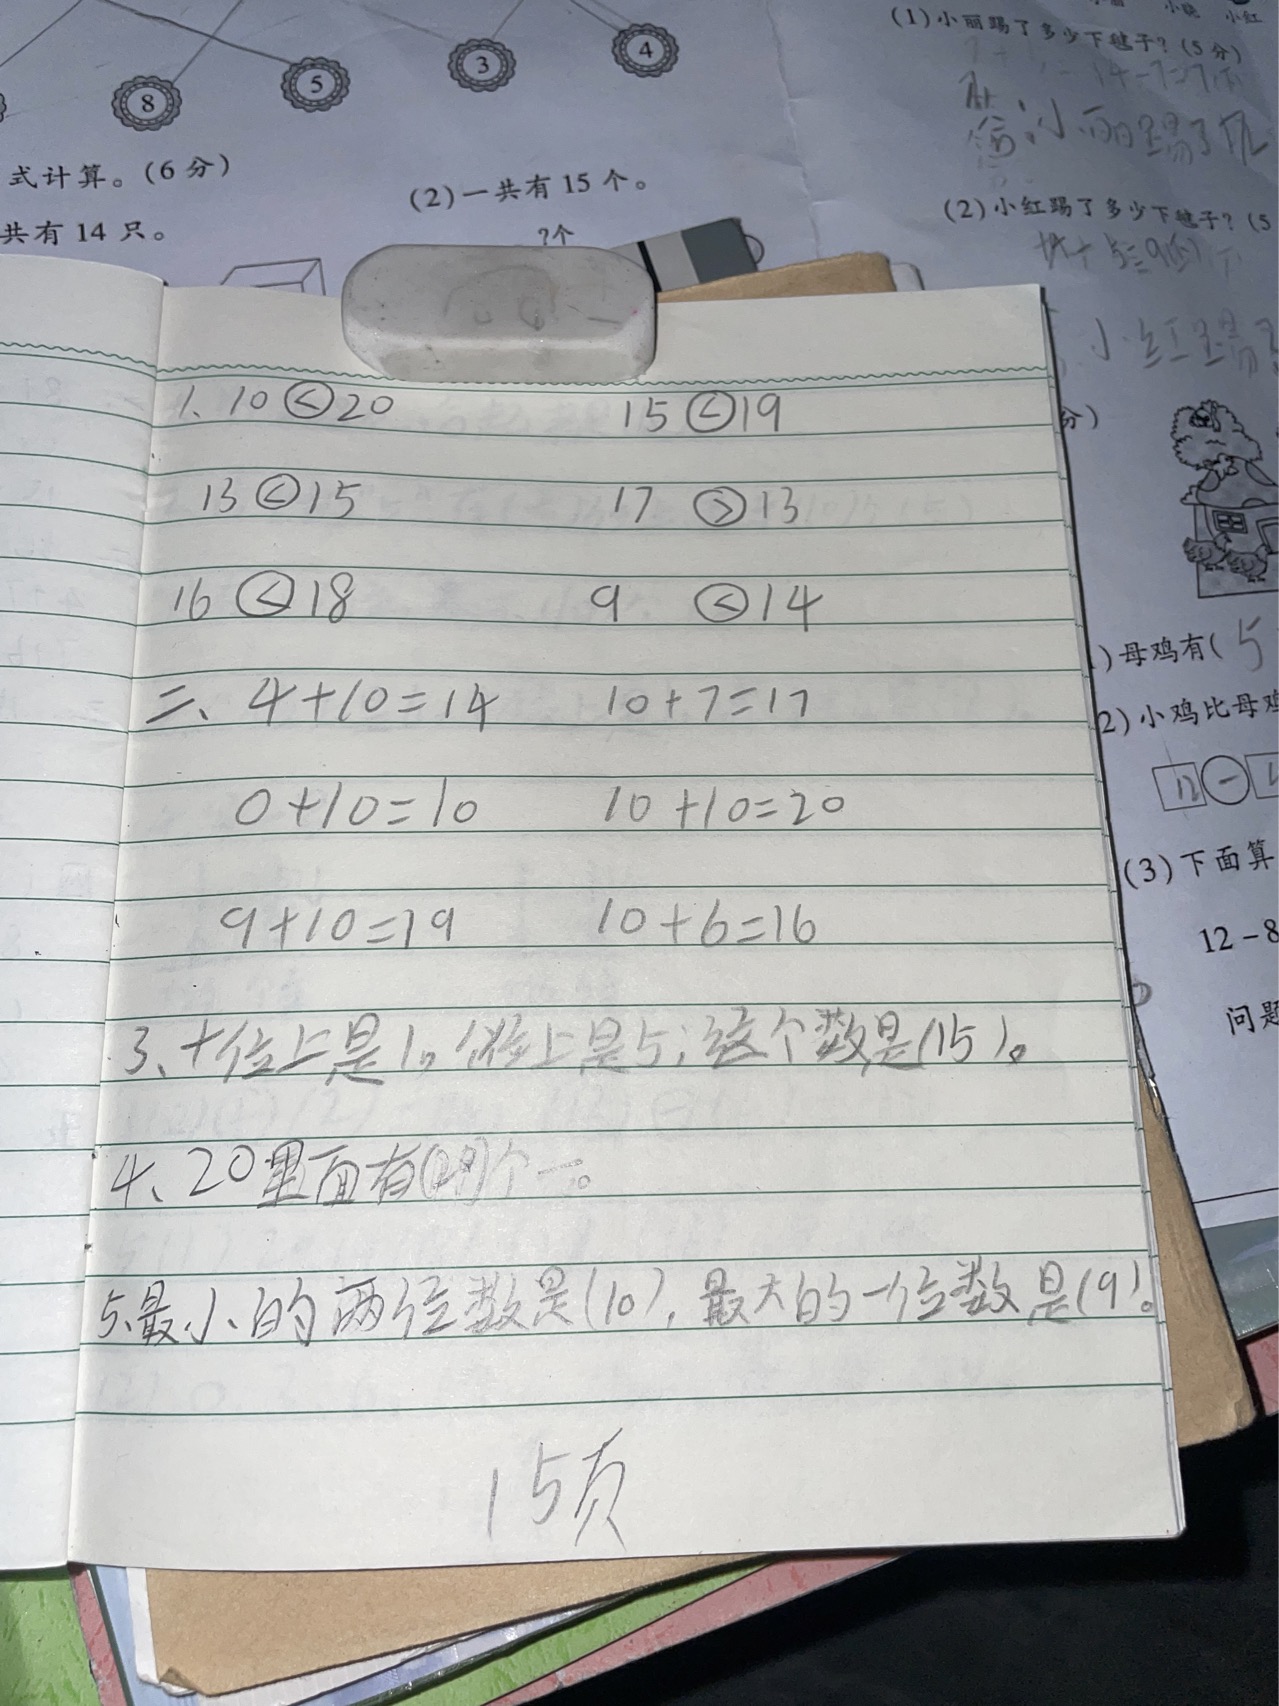 8
5
3
4
式计算。(6分)
共有14只。
(2)一共有15个。
?个
(1)小丽踢了多少下毽子?(5分)
14-7=7
小丽踢了
(2)小红踢了多少下毽子?(5
小红踢
分)
1、10<20 15<19
13<15 17>13
16<18 9<14
二、4+10=14 10+7=17
0+10=10 10+10=20
9+10=19 10+6=16
3、十位上是1。个位上是5;这个数是(15)。
4、20里面有(20)个一。
5、最小的两位数是(10),最大的一位数是(9)。
15页
)母鸡有( 5
2)小鸡比母鸡
12 -
(3)下面算
12-8
问题